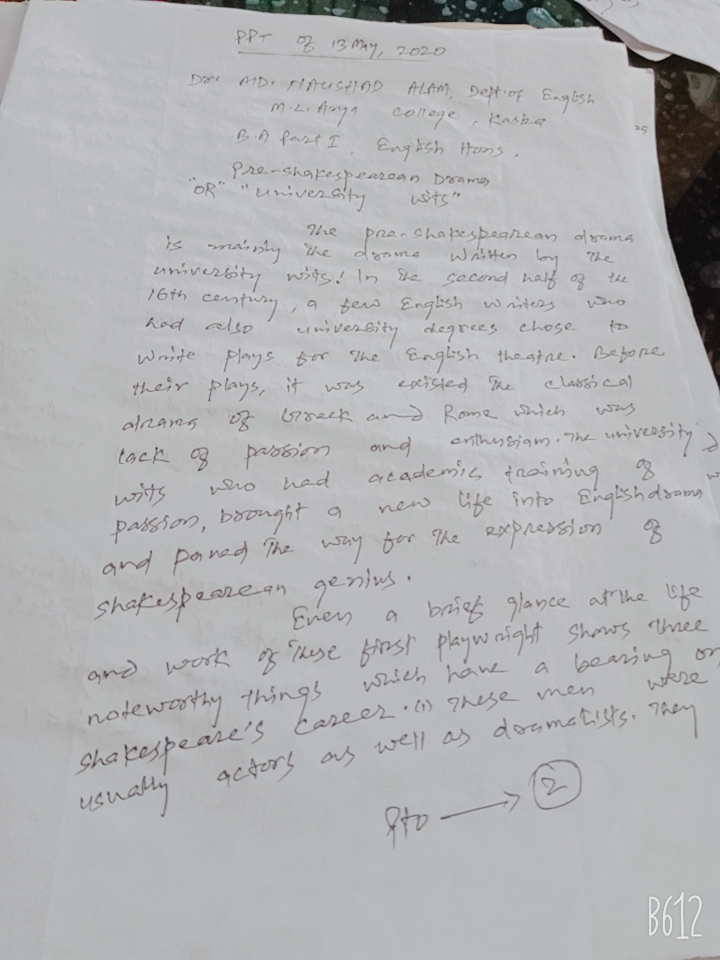 PPT of 13 May, 2020
Dr. MD. NAUSHAD ALAM, Dept. of English
M.L. Arya College, Kasba
B.A Part I, English Hons.
Pre-shakespearean Drama
"OR" "University wits"
The pre-shakespearean drama
is mainly the drama written by the
university wits! In the second half of the
16th century, a few English writers who
had also university degrees chose to
write plays for the English theatre. Before
their plays, it was existed the classical
drama of Greek and Rome which was
lack of passion and enthusiasm. The university
wits who had academic training of
passion, brought a new life into English drama
and paved the way for the expression of
shakespearean genius.
Even a brief glance at the life
and work of these first playwright shows three
noteworthy things which have a bearing on
shakespeare's career. (1) These men were
usually actors as well as dramatists. They
Pto → 2
B612